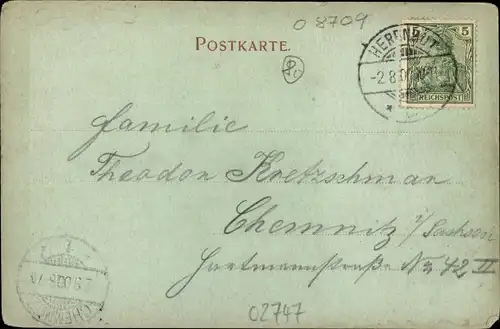 O 8709
POSTKARTE.
5 5
HERRNHUT
-2.8.00
REICHSPOST
Familie
Theodor Kretzschmar
Chemnitz i/Sachsen
Hartmannstraße No 42 II
CHEMNITZ
02747